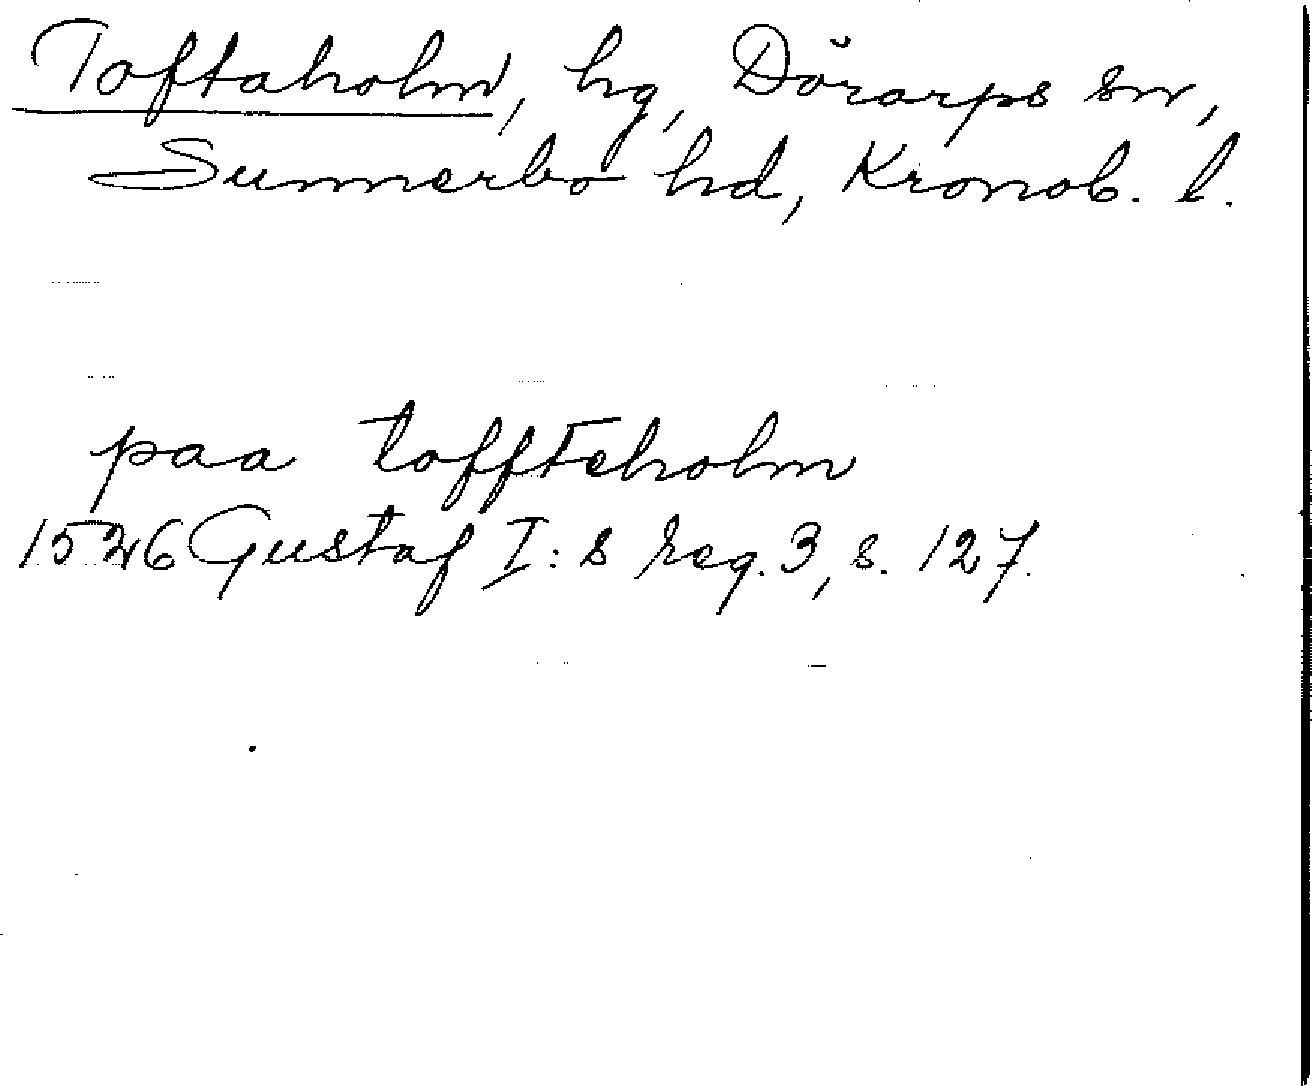 Toftaholm, hg, Dörarps sn,
Sunnerbo hd, Kronob. l.
paa toffteholm
1526 Gustaf I:s reg. 3, s. 127.